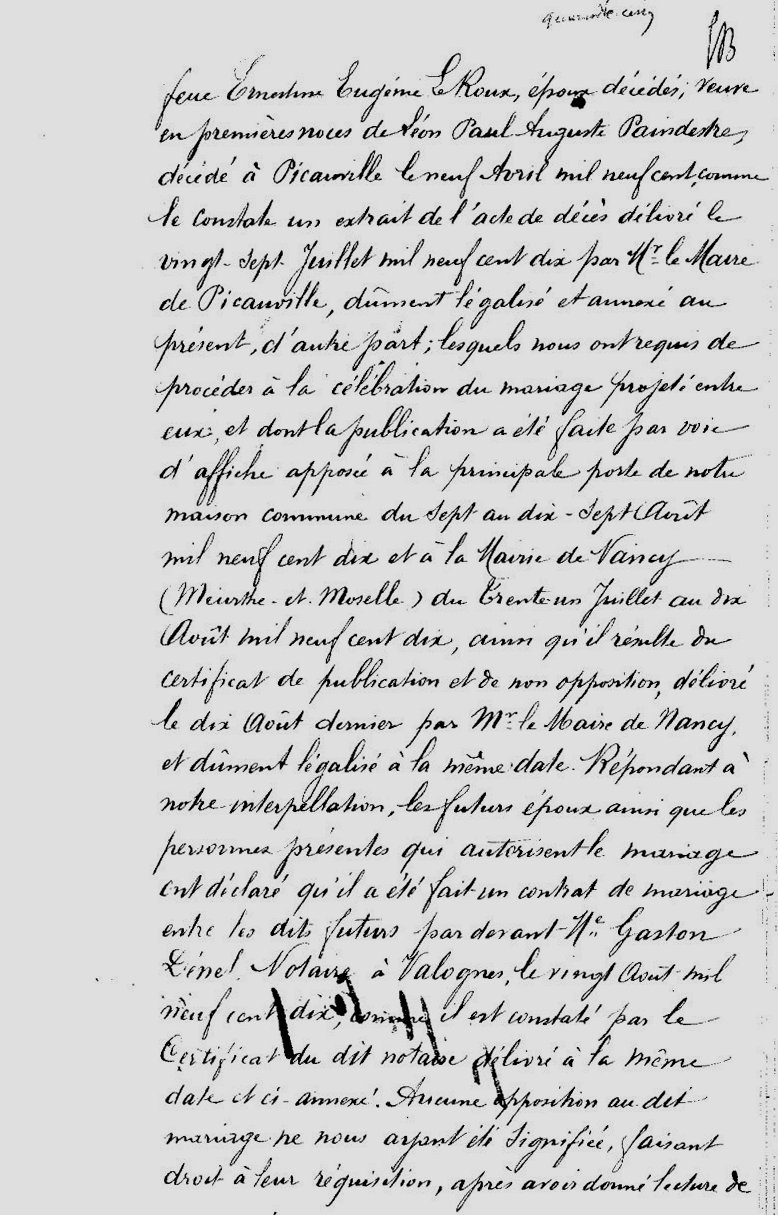 quarante cinq
feue Ernestine Eugénie Le Roux, époux décédés; veuve
en premières noces de Léon Paul Auguste Paindestre,
décédé à Picauville le neuf Avril mil neuf cent, comme
le constate un extrait de l'acte de décès délivré le
vingt-sept Juillet mil neuf cent dix par Mr le Maire
de Picauville, dûment légalisé et annexé au
présent, d'autre part; lesquels nous ont requis de
procéder à la célébration du mariage projeté entre
eux, et dont la publication a été faite par voie
d'affiche apposée à la principale porte de notre
maison commune du sept au dix-sept Août
mil neuf cent dix et à la Mairie de Nancy
(Meurthe-et-Moselle) du trente un Juillet au dix
Août mil neuf cent dix, ainsi qu'il résulte du
certificat de publication et de non opposition, délivré
le dix Août dernier par Mr le Maire de Nancy,
et dûment légalisé à la même date. Répondant à
notre interpellation, les futurs époux ainsi que les
personnes présentes qui autorisent le mariage
ont déclaré qu'il a été fait un contrat de mariage
entre les dits futurs par devant Me Gaston
Notaire à Valognes, le vingt Août mil
neuf cent dix, comme il est constaté par le
Certificat du dit notaire délivré à la même
date et ci-annexé. Aucune opposition au dit
mariage ne nous ayant été signifiée, faisant
droit à leur réquisition, après avoir donné lecture de